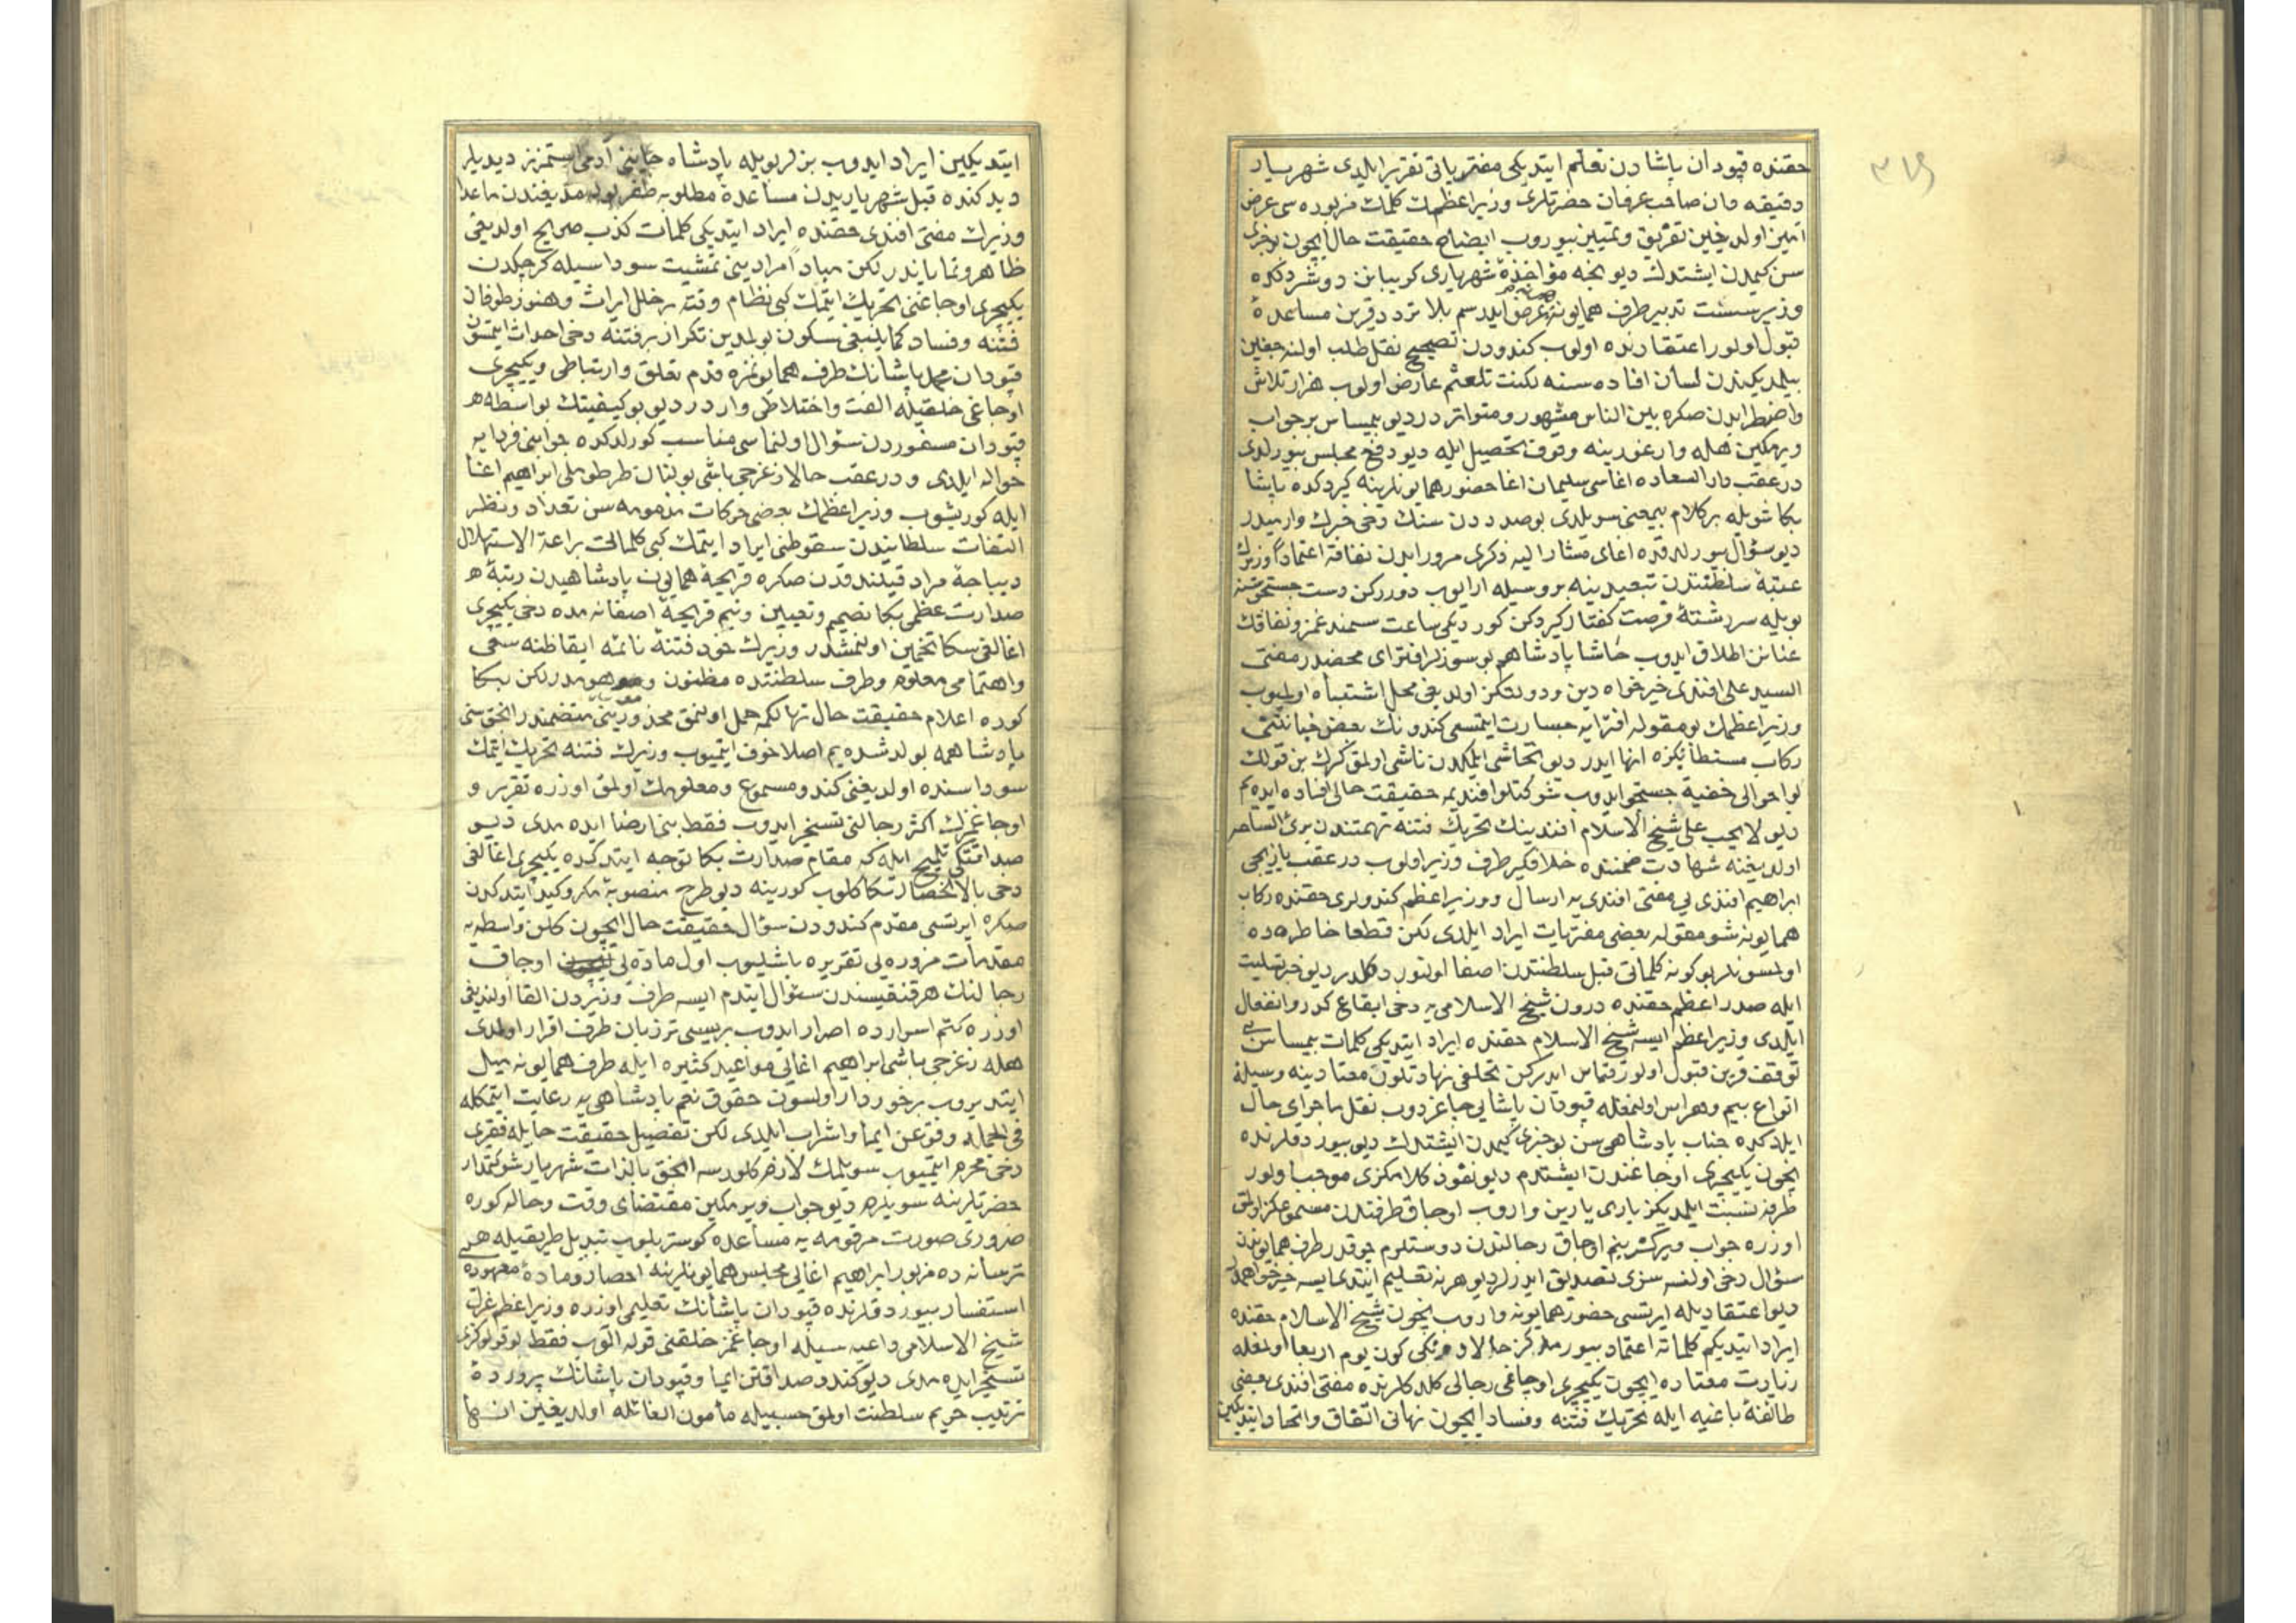 حقنده قپودان پاشادن تعلم ایتدیکی مفتریاتی تقریر ایلدی شهریار
دقیقه دان صاحب عرفان حضرتلری وزیر اعظمك کلمات مزبوره سی عرض
آمیز اولدیغین تفریق و تمییز بیوروب ایضاح حقیقت حال ایچون بو خبری
سن کیمدن ایشتدك دیو بخه مؤاخذهٔ شهریاری کریبانن دوشردکده
وزیر سست تدبیر طرف همایونه عرض ایلدسم بلا تردد قرین مساعدهٔ
قبول اولور اعتقادنده اولوب کندودن تصحیح نقل طلب اولنه جغین
بیلمدیکندن لسان افاده سنه لکنت تلعثم عارض اولوب هزار تلاش
واضطرابدن صکره بین الناس مشهور و متواتر در دیو بیمیساس بر جواب
ویرمکین هله وار غورینه وقوف تحصیل ایله دیو دفع مجلس بیورلدی
در عقب دار السعاده اغاسی سلیمان اغا حضور همایونلرینه کیردکده پاشا
بکا شویله بر کلام بیمعنی سویلدی بو صددن سنك دخی خبرك وارمیدر
دیو سؤال بیورلدقده اغای مشار الیه ذکری مرور ایدن نفاقه اعتمادا وزیرك
عتبهٔ سلطنتدن تبعیدینه بر وسیله ارایوب دوررکن دست جستجوسنه
بویله سررشتهٔ فرصت کفتار کیردکن کوردیکی ساعت سمند غمز و نفاقك
عنانن اطلاق ایدوب حاشا پادشاهم بو سوزلر افترای محضدر مفتی
السید علی افندی خیرخواه دین و دولتکز اولدیغی محل اشتباه اولمیوب
وزیر اعظمك بو مقوله افترایه جسارت ایتمسی کندونك بعض خیانتنی
رکاب مستطابکزه انها ایدر دیو تحاشی ایلمکدن ناشی اولمق کرك بن قولك
بو احوالی خفیه جستجو ایدوب شوکتلو افندیمه حقیقت حالی افاده ایده یم
دیو لا یحب علی شیخ الاسلام افندینك تحریك فتنه تهمتندن بری الساحه
اولدیغنه شهادت ضمننده خلافکیر طرف وزیر اولوب در عقب یازیجی
ابراهیم افندی یی مفتی افندی یه ارسال و وزیر اعظم کندولری حقنده رکاب
همایونه شو مقوله بعضی مفتریات ایراد ایلدی لکن قطعا خاطره ده
اولسونلر بو کونه کلماتی قبل سلطنتدن اصغا اولنور دکلدر دیو خبر تسلیت
ایله صدر اعظم حقنده درون شیخ الاسلامی یه دخی ایقاع کدر و انفعال
ایلدی وزیر اعظم ایسه شیخ الاسلام حقنده ایراد ایتدیکی کلمات بیمساس بی
توقف قرین قبول اولور قیاس ایدرکن تخلفی نهاد تلون معتادینه وسیلهٔ
انواع بیم و هراس اولمغله قپودان پاشایی چاغردوب نقل ماجرای حال
ایلدکده جناب پادشاهی سن بو خبری کیمدن ایشتدك دیو بیوردقلرنده
ایچون یکیچری اوجاغندن ایشتدم دیو نفوذ کلامکزی موجب اولور
طرفه نسبت ایلمدیکز باری یارین واروب اوجاق طرفندن مسموعکز اولمق
اوزره جواب ویرکز بنم اوجاق رجالندن دوستلرم چوقدر طرف همایوندن
سؤال دخی اولنسه سزی تصدیق ایدرلر دیو هر نه تعلیم ایتدیسه خیرخواهمدر
دیو اعتقادیله ایرتسی حضور همایونه واروب ایچون شیخ الاسلام حقنده
ایراد ایتدیکم کلماته اعتماد بیورمدیکز حالا دونکی کون یوم اربعا اولمغله
زیارت معتاده ایچون یکیچری اوجاغی رجالی کلدکلرنده مفتی افندی بعضی
طائفهٔ باغیه ایله تحریك فتنه و فساد ایچون نهانی اتفاق و اتحاد ایتدیکین
ایتدیکین ایراد ایدوب بزلر بویله پادشاه خاینی آدمی استمزز دیدیلر
دیدکنده قبل شهریاریدن مساعدهٔ مطلوبه ظفر بوله مدیغندن ماعدا
وزیرك مفتی افندی حقنده ایراد ایتدیکی کلمات کذب صریح اولدیغی
ظاهر و نمایاندر لکن مبادا مرادینی تمشیت سوداسیله کرچکدن
یکیچری اوجاغنی تحریك ایتمك کبی نظام وقته بر خلل ایراث و هنوز طوفان
فتنه و فساد کما ینبغی سکون بولمدین تکرار بر فتنه دخی احداث ایتمسون
قپودان محمد پاشانك طرف همایونمزه قدم تعلق و ارتباطی و یکیچری
اوجاغی خلقیله الفت و اختلاطی واردر دیو بو کیفیتك بواسطه هم
قپودان مسفوردن سؤال اولنماسی مناسب کورلدکده جوابنی فردایه
حواله ایلدی و در عقب حالا زغرجی باشی بولنان طرطوملی ابراهیم اغا
ایله کوریشوب وزیر اعظمك بعضی حرکات مذمومه سن تعداد و نظر
التفات سلطانیدن سقوطنی ایراد ایتمك کبی کلماتی براعة الاستهلال
دیباجهٔ مراد قیلندقدن صکره قریحهٔ همایون پادشاهیدن رتبهٔ
صدارت عظمی بکا تصمیم و تعیین و نیم قریحهٔ اصفانه مده دخی یکیچری
اغالغی سکا تخمین اولنمشدر وزیرك خود فتنهٔ نائمه ایقاظنه سعی
و اهتمامی معلوم و طرف سلطنتده مظنون و موهومدر لکن بکا
کوره اعلام حقیقت حال تهالکمه حمل اولنمق محذورینی متضمندر انجق سنی
پادشاهمه بولدشده یم اصلا خوف ایتمیوب وزیرك فتنه تحریك ایتمك
سوداسنده اولدیغنی کندو مسموع و معلومك اولمق اوزره تقریر و
اوجاغمزك اکثر رجالنی تسخیر ایدوب فقط بنی ارضا ایده مدی دیو
صداقتکی تلمیح ایله که مقام صدارت بکا توجه ایتدکده یکیچری اغالغی
دخی بالانحصار سکا کلوب کورینه دیو طرح منصوبهٔ مکر و کید ایتدکدن
صکره ایرتسی مقدم کندودن سؤال حقیقت حال ایچون کلن واسطه یه
مقدمات مزوره یی تقریره باشلیوب اول ماده یی اوجاق
رجالنك هر قنقیسندن سؤال ایتدم ایسه طرف وزیردن القا اولندیغی
اوزره کتم اسرارده اصرار ایدوب بریسی تر زبان طرف اقرار اولمدی
هله زغرجی باشی ابراهیم اغایی مواعید کثیره ایله طرف همایونه میل
ایتدیروب برخوردار اولسون حقوق نعم پادشاهی یه رعایت ایتمکله
فی الجمله وقوعن ایما و اشراب ایلدی لکن تفصیل حقیقت حایله فقیری
دخی محرم ایتمیوب سویلمك لازم کلورسه انجق بالذات شهریار شوکتمدار
حضرتلرینه سویلرم دیو جواب ویرمکین مقتضای وقت و حاله کوره
ضروری صورت مرقومه یه مساعده کوستریلوب تبدیل طریقیله هم
ترسانه ده مزبور ابراهیم اغایی مجلس همایونلرینه احضار و مادهٔ معهوده
استفسار بیوردقلرنده قپودان پاشانك تعلیمی اوزره وزیر اعظم عزل
شیخ الاسلامی داعیه سیله اوجاغمز خلقنی قوله الوب فقط بو قولوکزی
تسخیر ایده مدی دیو کندو صداقتن ایما و قپودان پاشانك پروردهٔ
ترتیب حریم سلطنت اولمق حسبیله مأمون الغائله اولدیغین انها